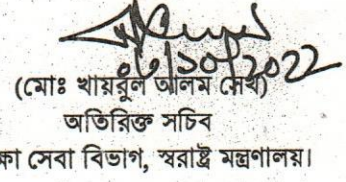 ০৬/১০/২০22
(মোঃ খায়রুল আলম সেখ)
অতিরিক্ত সচিব
সেবা বিভাগ, স্বরাষ্ট্র মন্ত্রণালয়।